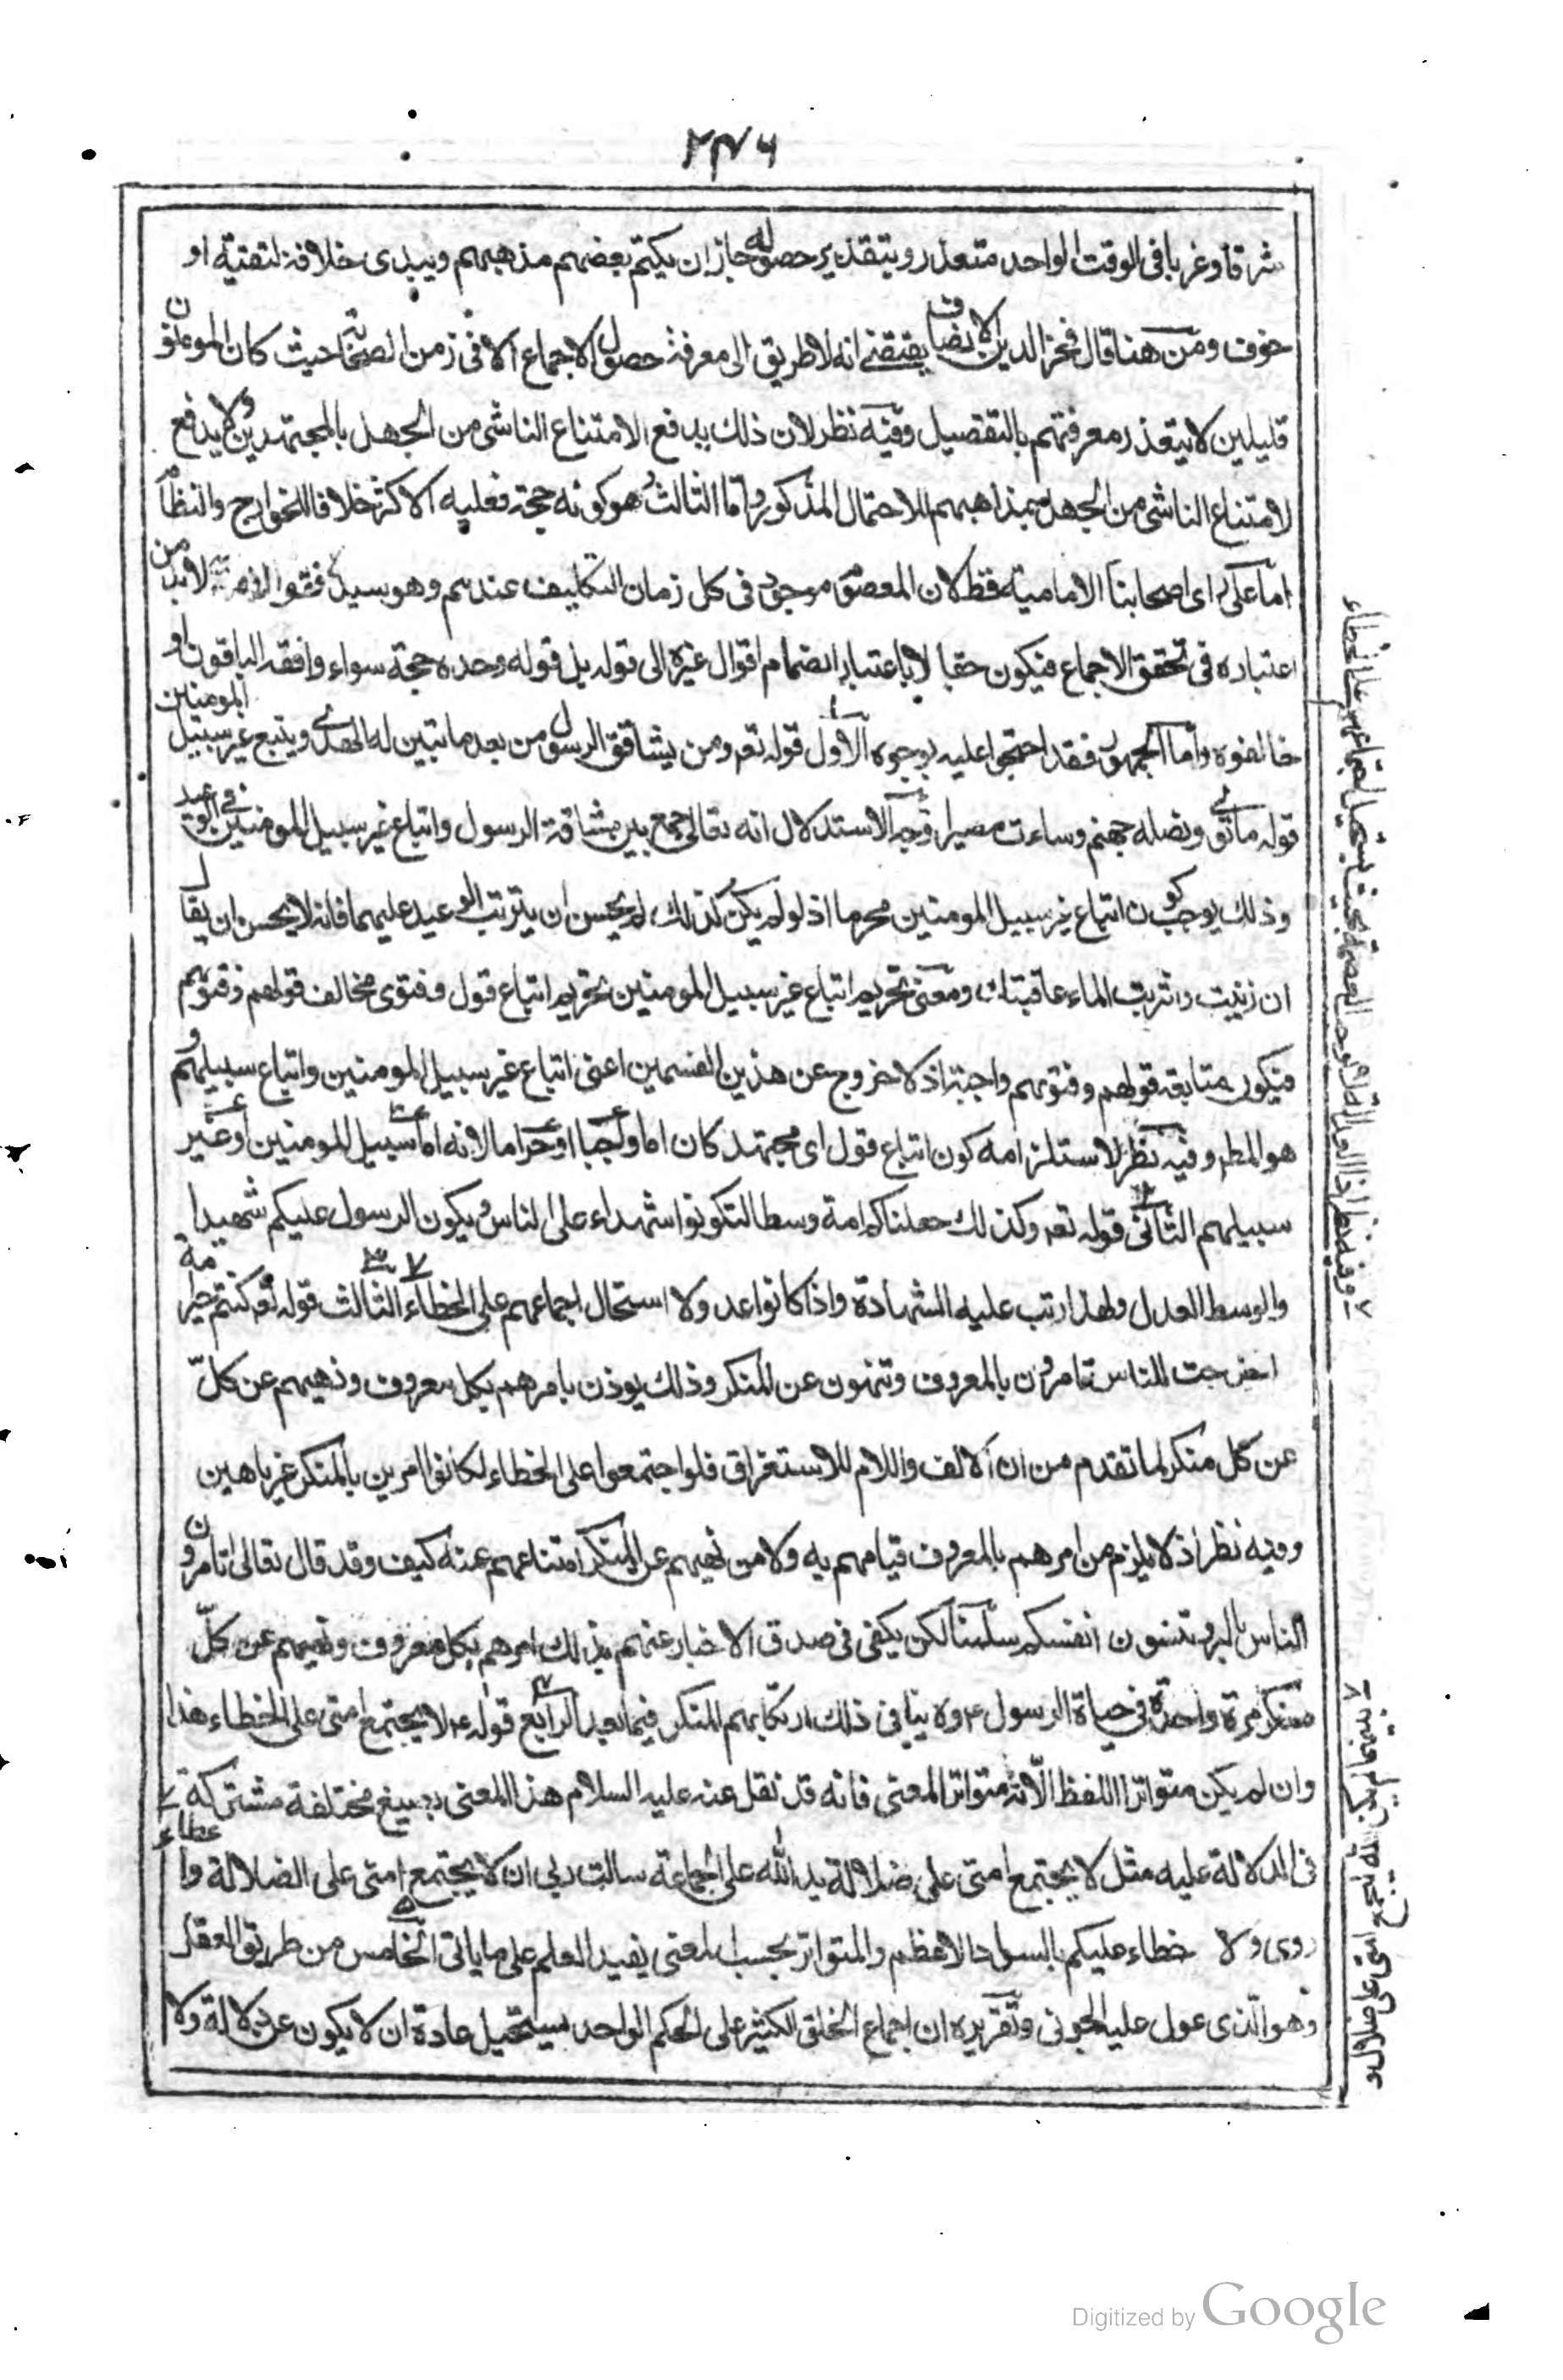 ٢٣٦
شرقا وغربا في الوقت الواحد متعذر وبتقدير حصوله جاز ان يكتم بعضهم مذهبهم ويبدى خلافه لتقية او
خوف ومن هنا قال فخر الدين الانصاف يقتضى انه لا طريق الى معرفة حصول الاجماع الا فى زمن الصحابة حيث كان المومنون
قليلين لا يتعذر معرفتهم بالتفصيل وفيه نظر لان ذلك يدفع الامتناع الناشى من الجهل بالمجتهدين ولا يدفع
لامتناع الناشى من الجهل بمذاهبهم للاحتمال المذكور واما الثالث وهو كونه حجة فعليه الاكثر خلافا للخوارج والنظام
اما على راى اصحابنا الامامية فظ لان المعصوم موجود فى كل زمان التكليف عندهم وهو سيد فقهاء الامة لابد من
اعتباره فى تحقق الاجماع فيكون حقا لا باعتبار انضمام اقوال غيره الى قوله بل قوله وحده حجة سواء وافقه الباقون او
خالفوه واما الجمهور فقد احتجوا عليه بوجوه الاول قوله تعه ومن يشاقق الرسول من بعد ما تبين له الهدى ويتبع غير سبيل المومنين
نوله ما تولى ونصله جهنم وساءت مصيرا وجه الاستدلال انه تعالى جمع بين مشاقة الرسول واتباع غير سبيل المومنين فى الوعيد
وذلك يوجب كون اتباع غير سبيل المومنين محرما اذ لو لم يكن كذلك لم يحسن ان يترتب الوعيد عليهما فانه لا يحسن ان يقال
ان زنيت وشربت الماء عاقبتك ومعنى تحريم اتباع غير سبيل المومنين تحريم اتباع قول وفتوى مخالف قولهم وفتوهم
فيكون متابعة قولهم وفتوهم واجبة اذ لا خروج عن هذين القسمين اعنى اتباع غير سبيل المومنين واتباع سبيلهم و
هو المط وفيه نظر لاستلزامه كون اتباع قول اى مجتهد كان اما واجبا او حراما لانه اما سبيل المومنين او غير
سبيلهم الثانى قوله تعه وكذلك جعلناكم امة وسطا لتكونوا شهداء على الناس ويكون الرسول عليكم شهيدا
والوسط العدل ولهذا رتب عليه الشهادة واذا كانوا عدولا استحال اجماعهم على الخطاء الثالث قوله تعه كنتم خير امة
اخرجت للناس تامرون بالمعروف وتنهون عن المنكر وذلك يوذن بامرهم بكل معروف ونهيهم عن كلّ
عن كل منكر لما تقدم من ان الالف واللام للاستغراق فلو اجتمعوا على الخطاء لكانوا امرين بالمنكر غير ناهين
وفيه نظر اذ لا يلزم من امرهم بالمعروف قيامهم به ولا من نهيهم عن المنكر امتناعهم عنه كيف وقد قال تعالى اتامرون
الناس بالبر وتنسون انفسكم سلمنا لكن يكفى فى صدق الاخبار عنهم بذلك امرهم بكل معروف ونهيهم عن كلّ
منكر مرة واحدة فى حياة الرسول ۴ ولا ينافى ذلك ارتكابهم المنكر فيما بعد الرابع قوله ۴ لا يجتمع امتى على الخطاء هذا
وان لم يكن متواترا اللفظ الا انه متواتر المعنى فانه قد نقل عنه عليه السلام هذا المعنى بصيغ مختلفة مشتركة
فى الدلالة عليه مثل لا يجتمع امتى على ضلالة يد الله على الجماعة سالت ربى ان لا يجتمع امتى على الضلالة واعطاء
روى ولا خطاء عليكم بالسواد الاعظم والمتواتر بحسب المعنى يفيد العلم على ما ياتى الخامس من طريق العقل
وهو الذى عول عليه الجونى وتقريره ان اجماع الخلق الكثير على الحكم الواحد يستحيل عادة ان لا يكون عن دلالة ولا
وفيه نظر اذ العدالة لا توجب العصمة بحيث يستحيل اجماعهم على الخطاء
Digitized by Google